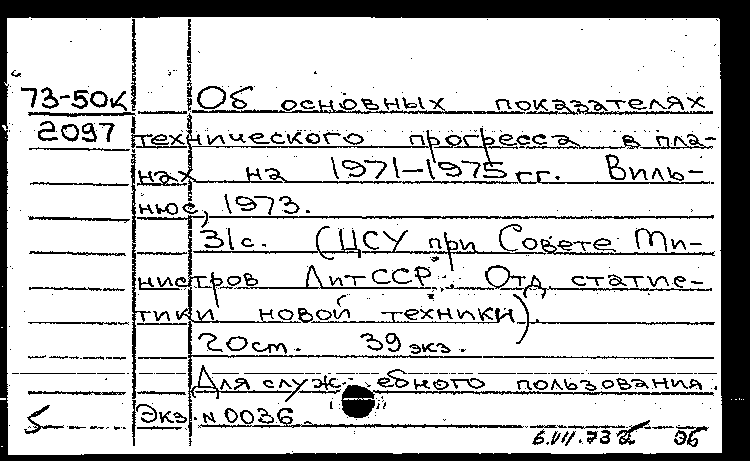 73-50к Об основных показателях
2097 технического прогресса в пла-
нах на 1971-1975 гг. Виль-
нюс, 1973.
31с. (ЦСУ при Совете Ми-
нистров ЛитССР. Отд. статис-
тики новой техники).
20 ст. 39 экз.
Для служебного пользования.
5 Экз. N 0036.
6.VII.73